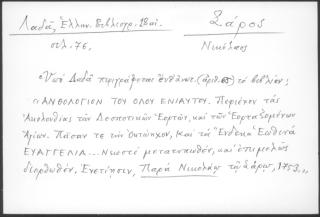 Λαδᾶ, Ἑλλην. Βιβλιογρ. 18 αἰ.
Σάρος
σελ. 76.
Νικόλαος
Ὑπὸ Λαδᾶ περιγράφεται (ἀριθ. 65) τὸ βιβλίον;
ΑΝΘΟΛΟΓΙΟΝ ΤΟΥ ΟΛΟΥ ΕΝΙΑΥΤΟΥ. Περιέχον τὰς
Ἀκολουθίας τῶν Δεσποτικῶν Ἑορτῶν, καὶ τῶν Ἑορταζομένων
Ἁγίων. Πᾶσαν τε τὴν Ὀκτώηχον, καὶ τὰ Ἕνδεκα Ἑωθινὰ
ΕΥΑΓΓΕΛΙΑ... Νεωστὶ μετατυπωθὲν, καὶ ἐπιμελῶς
διορθωθέν. Ἐνετίησιν, Παρὰ Νικολάῳ τῷ Σάρῳ, 1753.,,